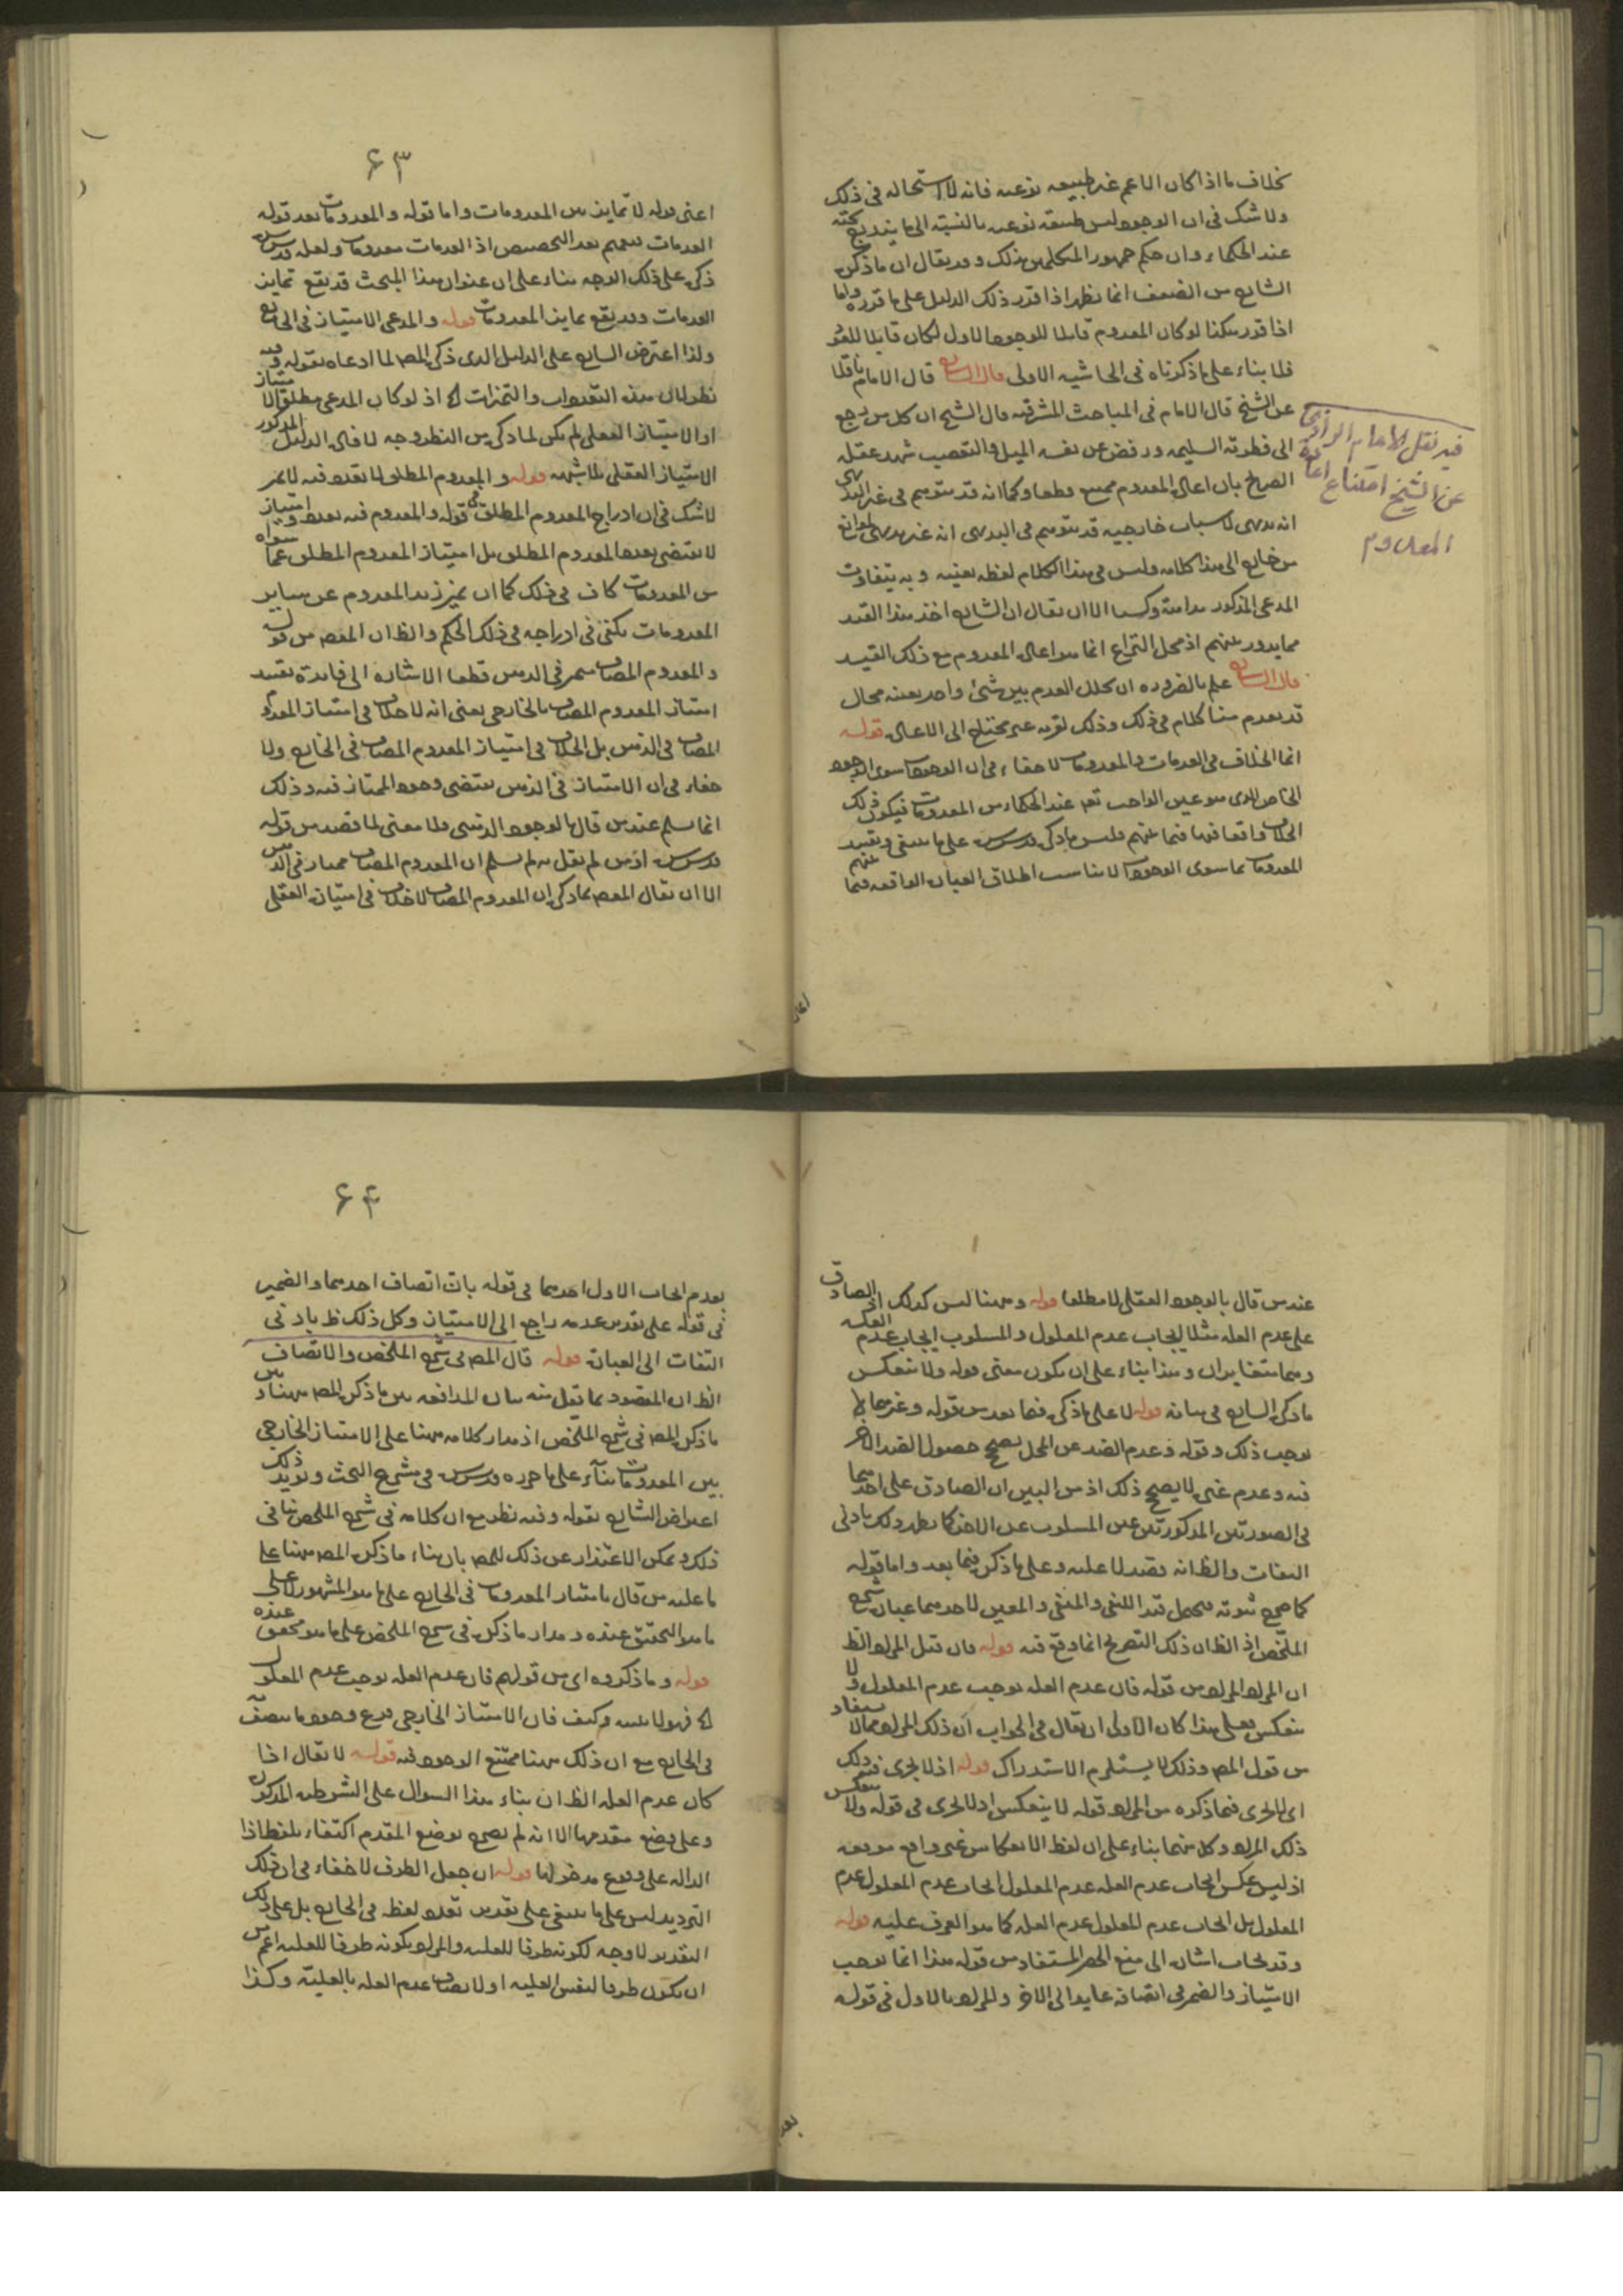 بخلاف ما اذا كان الاعم غير طبيعه نوعيه فانه لا استحاله فى ذلك
ولا شك فى ان الوجود ليس طبيعه نوعيه بالنسبة الى ما يندرج تحته
عند الحكماء وان حكم جمهور المتكلمين بذلك وقد يقال ان ما ذكره
الشارح من الضعف انما يظهر اذا قرر ذلك الدليل على ما قرره واما
اذا قرر هكذا لو كان المعدوم قابلا للوجود الاول لكان قابلا للعود
فلا بناء على ما ذكرناه فى الحاشيه الاولى قال الشارح قال الامام ناقلا
عن الشيخ قال الامام فى المباحث المشرقيه قال الشيخ ان كل من رجع
الى فطرته السليمه ورفض عن نفسه الميل والتعصب شهد عقله
الصريح بان اعادة المعدوم ممتنع قطعا وكما انه قد يتوهم فى غير البديهى
انه بديهى لاسباب خارجيه قد يتوهم فى البديهى انه غير بديهى لموانع
من خارج الى هذا كلامه وليس فى هذا الكلام لفظه بعينه وبه يتفاوت
المدعى المذكور بداهة وكسبا الا ان يقال ان الشارح اخذ هذا القيد
مما يدور بينهم اذ محل النزاع انما هو اعادة المعدوم مع ذلك القيد
قال الشارح علم بالضروره ان تخلل العدم بين شئ واحد بعينه محال
قد يعدم منا كلام فى ذلك وذلك لقربه غير محتاج الى الاعادة قوله
انما الخلاف فى العدمات والمعدومات لا خفاء فى ان الوجود سوى الوجود
الخاص الذى هو عين الواجب تعم عند الحكماء من المعدومات فيكون ذلك
الخلاف واقعا فيها فيما بينهم فليس ما ذكره قدس سره على ما ينبغى وتقييد
المعدومات بما سوى الوجود لا يناسب اطلاق العبارة الواقعه فيما بينهم
فيه نقل الامام الرازى
عن الشيخ امتناع اعادة
المعدوم
۶۳
اعنى قوله لا تمايز بين المعدومات واما قوله والمعدومات بعد قوله
العدمات تعميم بعد التخصيص اذ العدمات معدومات ولعله قدس سره
ذكره على ذلك الوجه بناء على ان عنوان هذا المبحث قد يقع تمايز
العدمات وقد يقع تمايز المعدومات قوله والمدعى الامتياز فى الخارج
ولذا اعترض الشارح على الدليل الذى ذكره المص لما ادعاه بقوله وفيه
نظر لان هذه التعددات والتميزات اه اذ لو كان المدعى مطلق الامتياز
او الامتياز العقلى لم يكن لما ذكره من النظر وجه لافادة الدليل المذكور
الامتياز العقلى بلا شبهه قوله والمعدوم المطلق لا تعدد فيه لا تميز
لا شك فى ان ادراج المعدوم المطلق فى قوله والمعدوم فيه تعدد وامتياز
لا يقتضى تعدد المعدوم المطلق بل امتياز المعدوم المطلق عما سواه
من المعدومات كاف فى ذلك كما ان تميز زيد المعدوم عن ساير
المعدومات يكفى فى ادراجه فى ذلك الحكم والظ ان المقص من قوله
والمعدوم المضاف متميز فى الذهن قطعا الاشاره الى فايدة تقييد
امتياز المعدوم المضاف بالخارجى يعنى انه لا خلاف فى امتياز المعدوم
المضاف فى الذهن بل الخلاف فى امتياز المعدوم المضاف فى الخارج ولا
خفاء فى ان الامتياز فى الذهن يقتضى وجود الممتاز فيه وذلك
انما يسلم عند من قال بالوجود الذهنى ولا معنى لما قصد من قوله
قدس سره اذ من لم يقل به لم يسلم ان المعدوم المضاف ممتاز فى الذهن
الا ان يقال المقص بما ذكره ان المعدوم المضاف لا خلاف فى امتيازه العقلى
عند من قال بالوجود العقلى لا مطلقا قوله وههنا ليس كذلك اذ الصادق
على عدم العله مثلا ايجاب عدم المعلول والمسلوب ايجاب عدم العكس
وهما متغايران وهذا بناء على ان يكون معنى قوله ولا ينعكس
ما ذكره الشارح فى بيانه قوله لا على ما ذكره فيما بعد من قوله وغيرهما لا
يوجب ذلك وقوله وعدم الضد عن المحل يصحح حصول الضد الاخر
فيه وعدم غيره لا يصحح ذلك اذ من البين ان الصادق على احدهما
فى الصورتين المذكورتين عين المسلوب عن الاخر كما يظهر ذلك بادنى
التفات والظ انه وقصد لا عليه وعلى ما ذكره فيما بعد واما قوله
كما صح ثبوته يحتمل قيد النفى والمنفى والمعين لاحدهما عبارة شرح
الملخص اذ الظ ان ذلك التصريح انما وقع فيه قوله فان قيل المراد الظ
ان المراد المراد من قوله فان عدم العله يوجب عدم المعلول ولا
ينعكس فعلى هذا كان الاولى ان يقال فى الجواب ان ذلك المراد مما لا يستفاد
من قول المص وذلك لا يستلزم الاستدراك قوله اذ لا يجرى فيه ذلك
اى لا يجرى فيما ذكروه من المراد قوله لا ينعكس اذ لا يجرى فى قوله ولا ينعكس
ذلك المراد وكل منهما بناء على ان لفظ الانعكاس غير واقع موقعه
اذ ليس عكس ايجاب عدم العله عدم المعلول ايجاب عدم المعلول عدم
المعلول بل ايجاب عدم المعلول عدم العله كما هو المعرف عليه قوله
وقد يجاب اشارة الى منع الحصر المستفاد من قوله هذا انما يوجب
الامتياز والضمير فى اتصافه عايد الى الاخر والمراد بالاول فى قوله
۶۴
بعدم ايجاب الاول احدهما فى قوله بان اتصاف احدهما والضمير
فى قوله على تقدير عدمه راجع الى الامتياز وكل ذلك ظ بادنى
التفات الى العبارة قوله قال المص فى شرح الملخص والانصاف
الظ ان المقصود بما نقل منه بيان المدافعه بين ما ذكره المص ههنا وبين
ما ذكره المص فى شرح الملخص اذ مدار كلامه ههنا على الامتياز الخارجى
بين المعدومات بناء على ما حرره قدس سره فى مشرع البحث ويؤيد ذلك
اعتراض الشارح بقوله وفيه نظر مع ان كلامه فى شرح الملخص ينافى
ذلك ويمكن الاعتذار عن ذلك للمص بان بناء ما ذكره المص ههنا على
ما عليه من قال بامتياز المعدومات فى الخارج على ما هو المشهور لا على
ما هو التحقيق عنده ومدار ما ذكره فى شرح الملخص على ما هو محقق عنده
قوله وما ذكروه اى من قولهم فان عدم العله يوجب عدم المعلول
اه فهو لا يثبته وكيف فان الامتياز الخارجى فرع وجود ما يتصف به
فى الخارج مع ان ذلك ههنا ممتنع الوجود فيه قوله لا يقال اذا
كان عدم العله الظ ان بناء هذا السؤال على الشرطيه المذكوره
وعلى وضع مقدمها الا انه لم يصرح بوضع المقدم اكتفاء بلفظ اذا
الداله على وقوع مدخولها قوله ان جعل الظرف لا خفاء فى ان ذلك
الترديد ليس على ما ينبغى على تقدير تقدم لفظ فى الخارج بل على ذلك
التقدير لا وجه لكونه ظرفا للعليه والمراد بكونه ظرفا للعليه اعم من
ان يكون ظرفا لنفس العليه او لاتصاف عدم العله بالعليّة وكذا